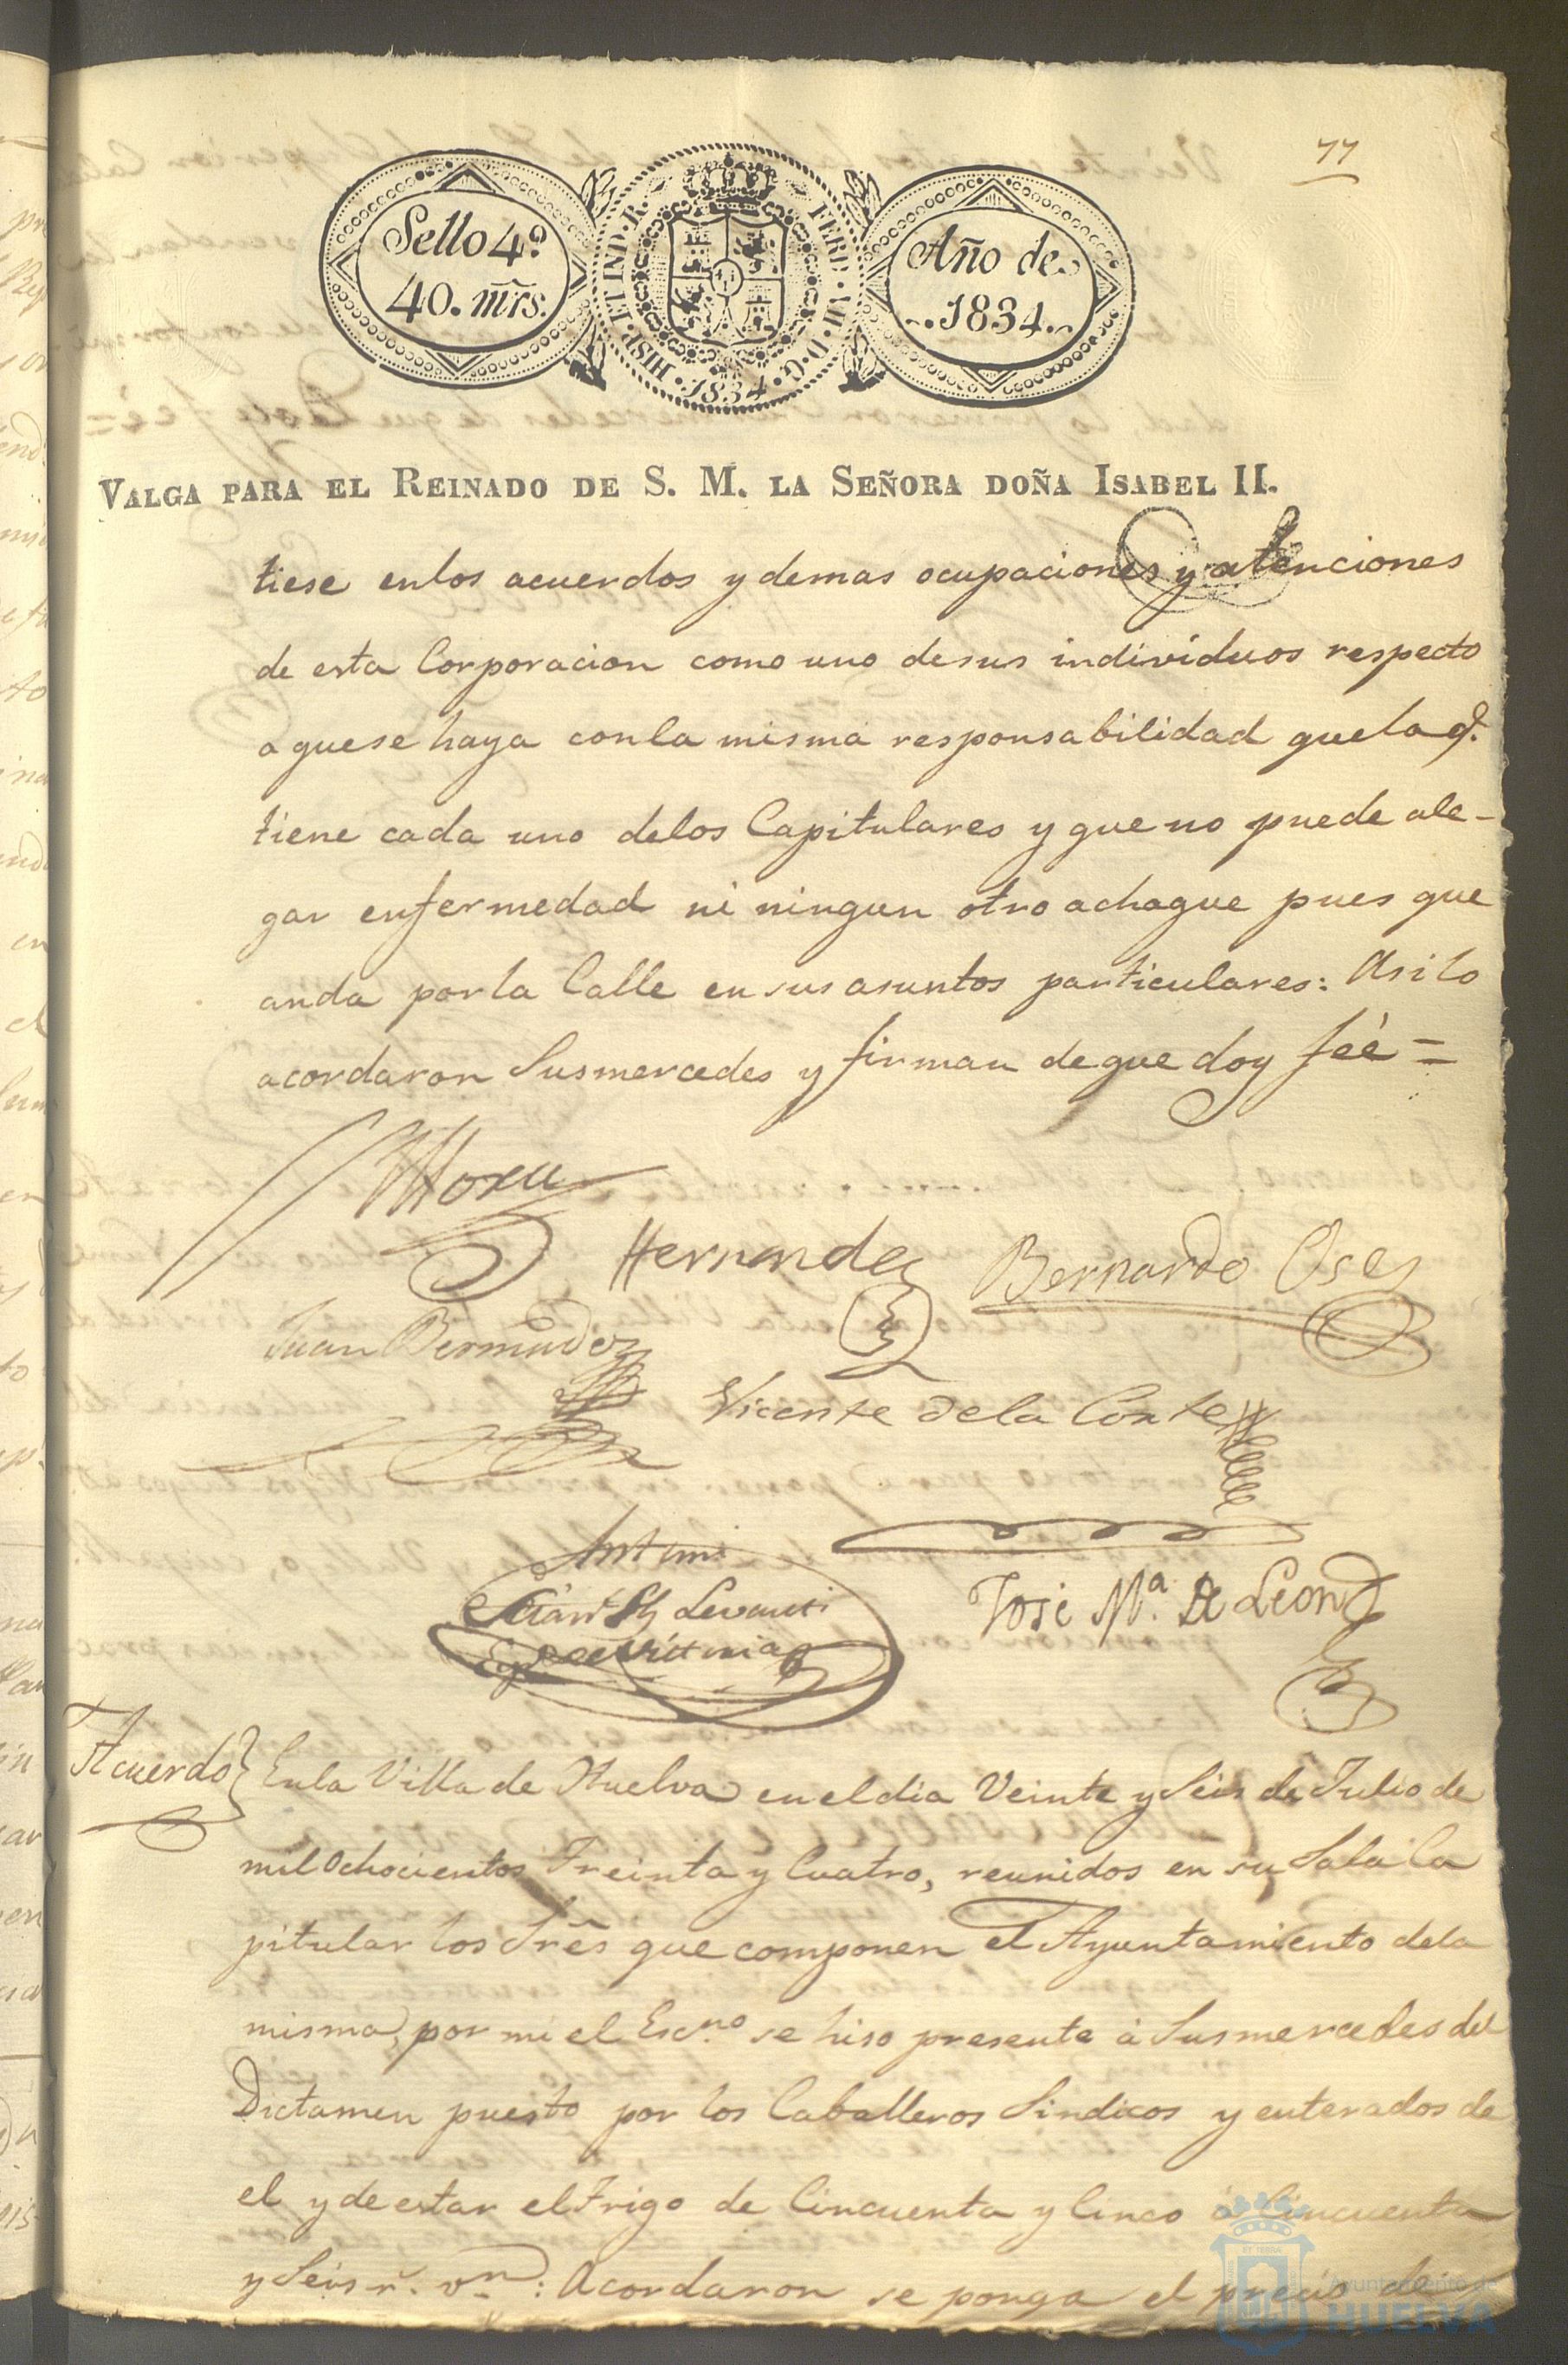 77
Sello 4º
40. mr̃s.
HISP. ET IND. R. FERD. VII. D. G. 1834
Año de
1834.
VALGA PARA EL REINADO DE S. M. LA SEÑORA DOÑA ISABEL II.
tiese enlos acuerdos y demas ocupaciones y atenciones
de esta Corporacion como uno desus individuos respecto
a quese haya conla misma responsabilidad quela q.
tiene cada uno delos Capitulares y que no puede ale-
gar enfermedad ni ningun otro achaque pues que
anda por la Calle en sus asuntos particulares: Asi lo
acordaron Susmercedes y firman de que doy feé =
Mora
Hernandez
Bernardo Oses
Juan Bermudez
Vicente dela Corte
José Mª. De Leon
Acuerdo
Enla Villa de Huelva en el dia Veinte y Seis de Julio de
mil Ochocientos Treinta y Cuatro, reunidos en su Sala Ca
pitular los Sr̃es que componen el Ayuntamiento dela
misma, por mi el Escno. se hiso presente á Susmercedes del
Dictamen puesto por los Caballeros Sindicos y enterados de
el y de estar el Trigo de Cincuenta y Cinco á Cincuenta
y Seis r.s vn: Acordaron se ponga el precio de
Ayuntamiento de
HUELVA